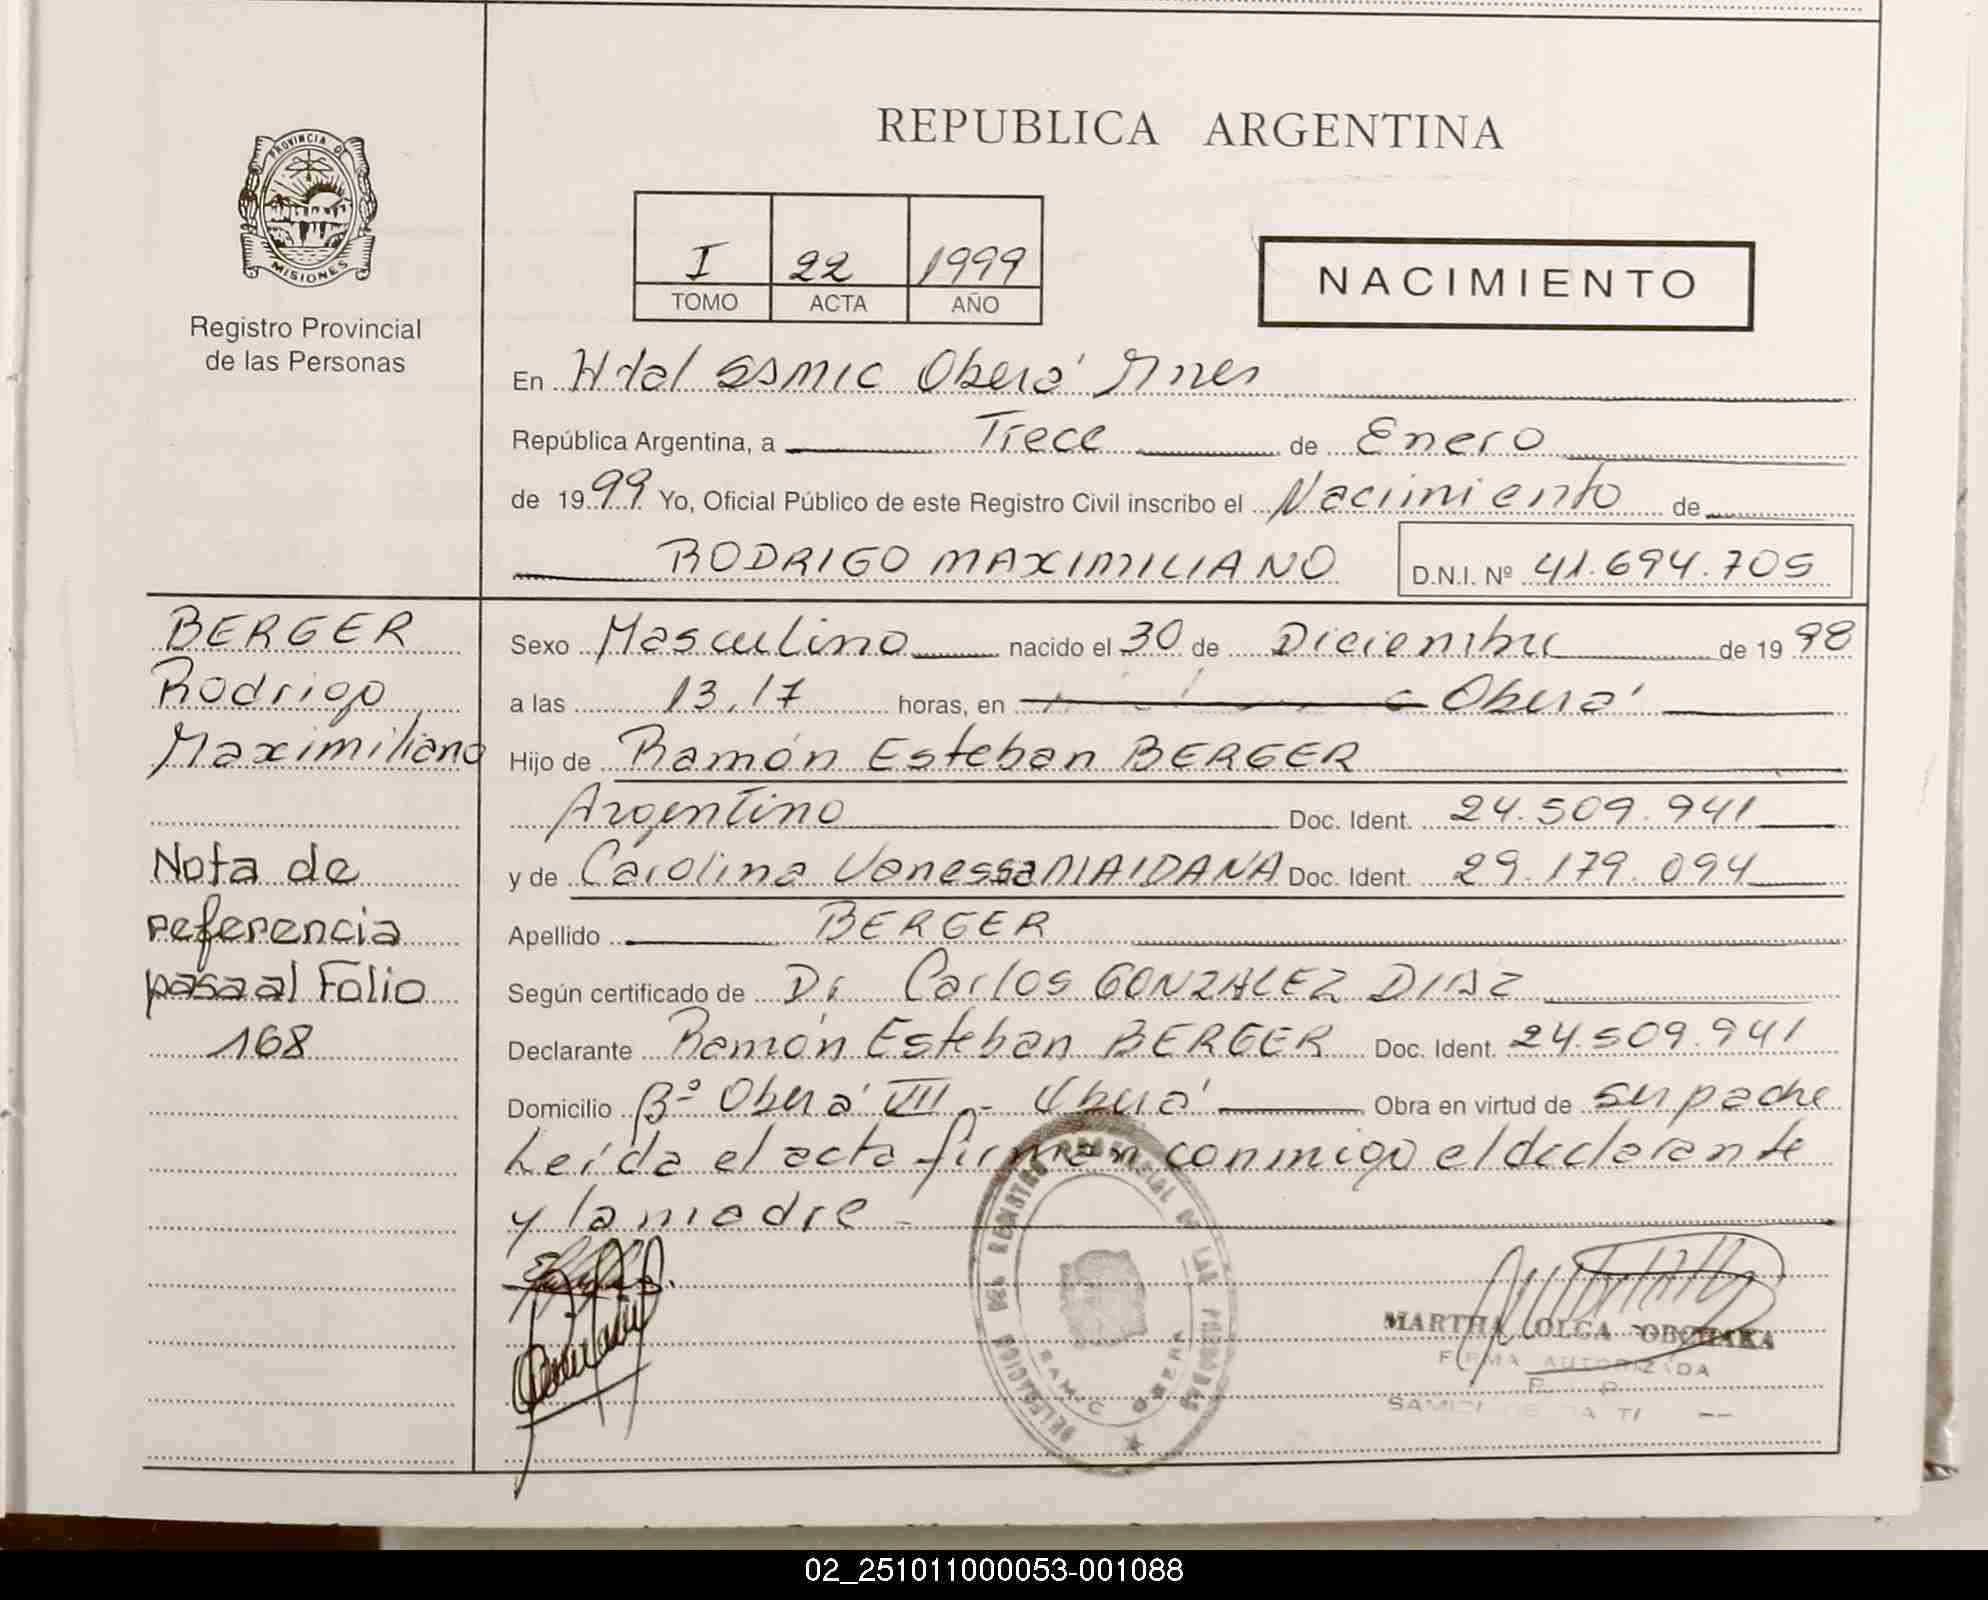 REPUBLICA ARGENTINA
PROVINCIA DE
MISIONES
Registro Provincial
de las Personas
I 22 1999
TOMO ACTA AÑO
NACIMIENTO
En Htal SSMIC Oberá Mnes
República Argentina, a Trece de Enero
de 1999 Yo, Oficial Público de este Registro Civil inscribo el Nacimiento de
RODRIGO MAXIMILIANO D.N.I. Nº 41.694.705
BERGER
Rodrigo
Maximiliano
Nota de
referencia
pasa al Folio
168
Sexo Masculino nacido el 30 de Diciembre de 1998
a las 13,17 horas, en Oberá
Hijo de Ramón Esteban BERGER
Argentino Doc. Ident. 24.509.941
y de Carolina Vanessa MAIDANA Doc. Ident. 29.179.094
Apellido BERGER
Según certificado de Dr Carlos GONZALEZ DIAZ
Declarante Ramón Esteban BERGER Doc. Ident. 24.509.941
Domicilio Bº Oberá VIII - Oberá Obra en virtud de ser padre
Leída el acta firman conmigo el declarante
y la madre
DELEGACION DEL REGISTRO PROVINCIAL DE LAS PERSONAS
SAMIC OBERA
MARTHA OLGA OBCHAKA
FIRMA AUTORIZADA
02_251011000053-001088